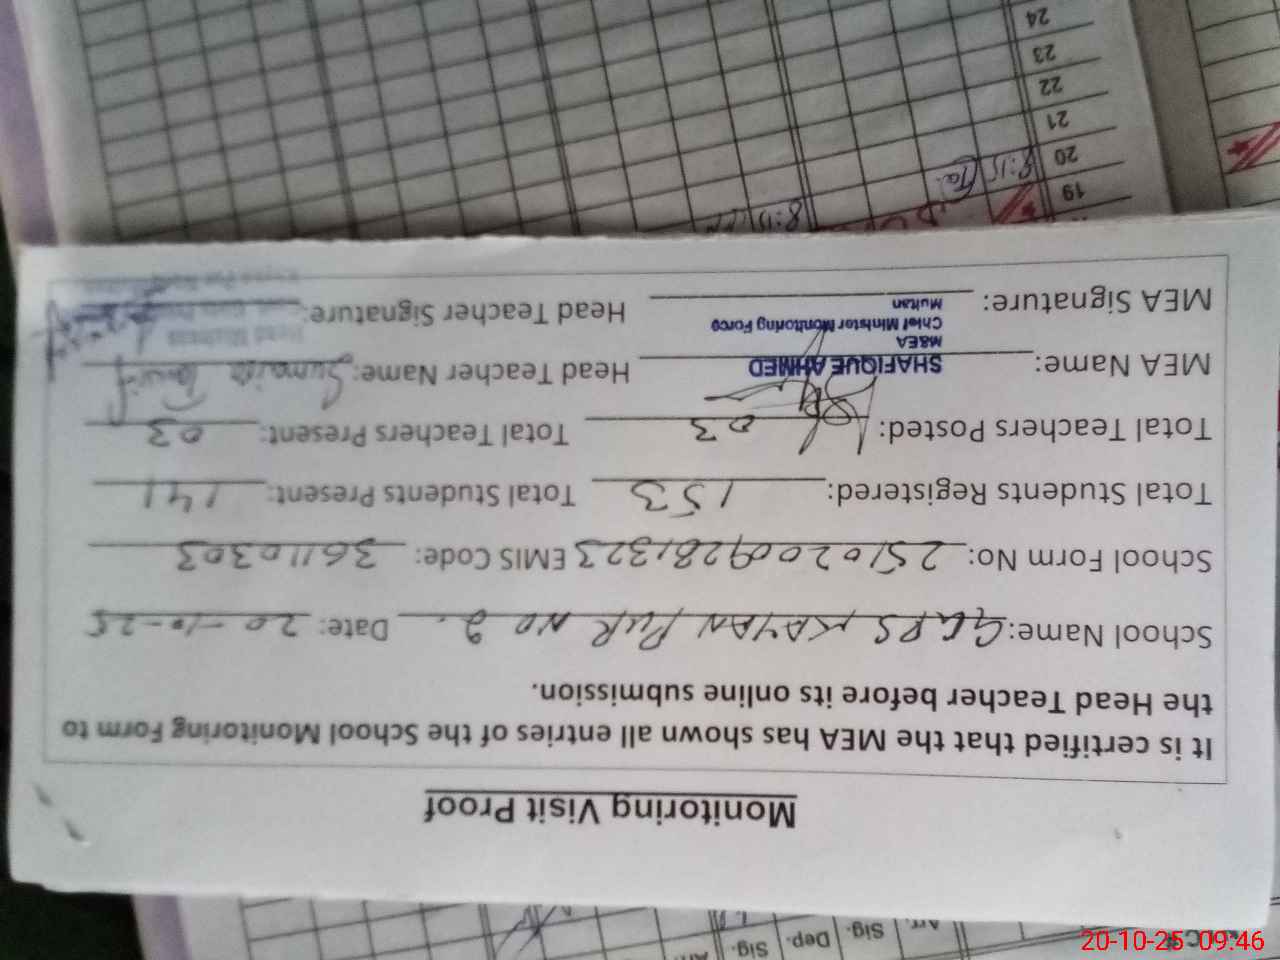 Monitoring Visit Proof
It is certified that the MEA has shown all entries of the School Monitoring Form to
the Head Teacher before its online submission.
School Name: GGPS KAYAN PUR NO 2. Date: 20-10-25
School Form No: 25102009281323 EMIS Code: 36110303
Total Students Registered: 153 Total Students Present: 141
Total Teachers Posted: 03 Total Teachers Present: 03
MEA Name: SHAFIQUE AHMED Head Teacher Name: Sumaira
M&EA
Chief Minister Monitoring Force
Multan
MEA Signature: Head Teacher Signature:
Head Mistress
19
20 8:15
21
22
23
24
8:15
Arr. Sig. Dep. Sig.
20-10-25 09:46